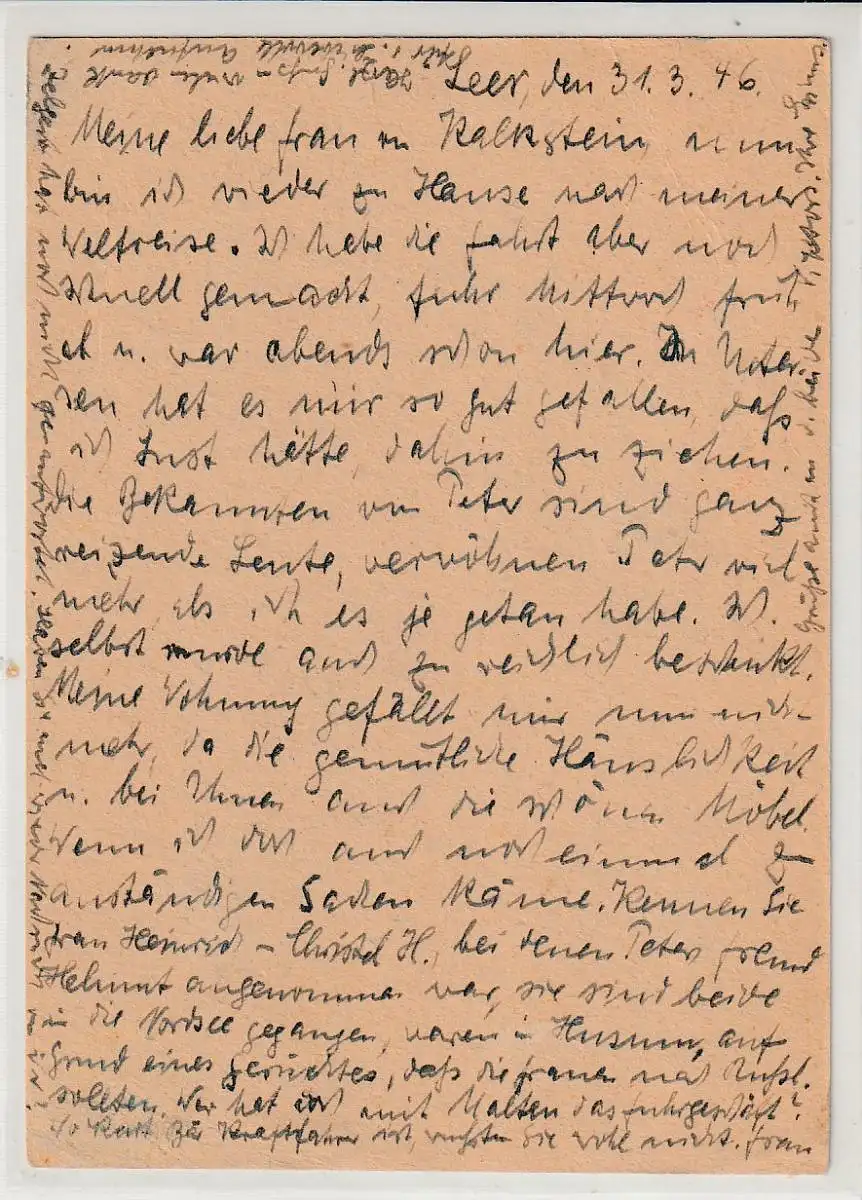 Leer, den 31.3.46.
Meine liebe Frau v. Kalkstein, nun
bin ich wieder zu Hause nach meiner
Weltreise. Ich habe die Fahrt aber noch
schnell gemacht, fuhr Mittwoch früh
ab u. war abends schon hier. In Ueter-
sen hat es mir so gut gefallen, daß
ich Lust hätte, dahin zu ziehen.
Die Bekannten von Peter sind ganz
reizende Leute, verwöhnen Peter viel
mehr, als ich es je getan habe. Ich
selbst wurde auch zu reichlich beschenkt.
Meine Wohnung gefällt mir nun nicht
mehr, da die gemütliche Häuslichkeit
u. bei Ihnen auch die schönen Möbel.
Wenn ich doch auch noch einmal zu
anständigen Sachen käme. Kennen Sie
Frau Heinrich - Christel H., bei denen Peters Freund
Helmut angenommen war, sie sind beide
in die Nordsee gegangen, waren in Husum, auf
Grund eines Gerüchtes, daß die Frauen nach Rußl.
sollten. Wer hat dort mit das Fuhrgeschäft?
Kurt Kraftfahrer ist, wußten Sie wohl nicht. Frau
hat noch nicht geantwortet. Haben Sie mal Nachricht von ihr?
Herzl. Gruß u. vielen Dank
Aufnahme
Grüße auch an d. beiden Ihre